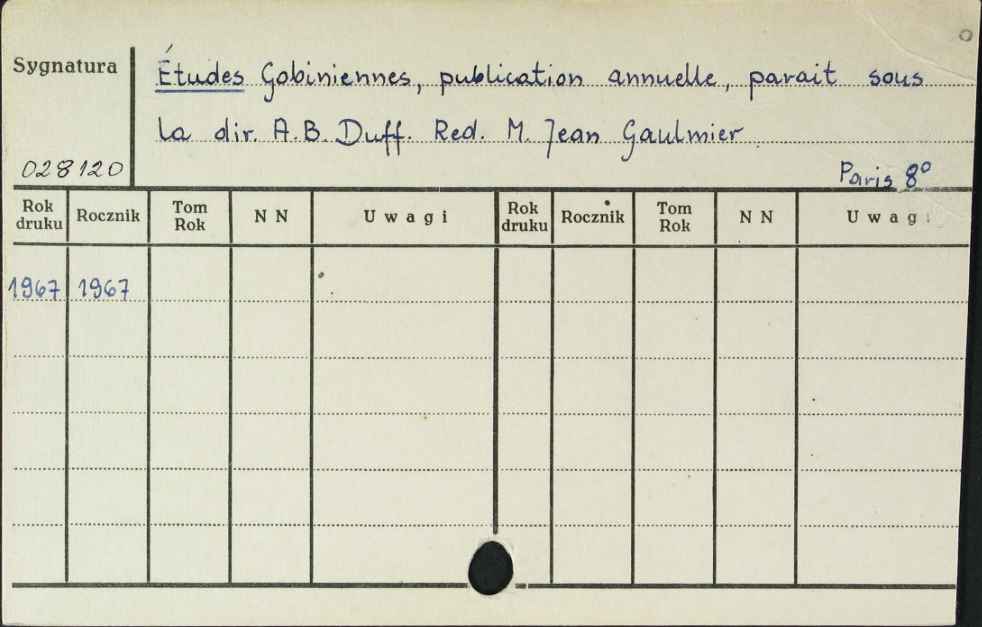 Sygnatura
Études Gobiniennes, publication annuelle, parait sous
la dir. A.B. Duff. Red. M. Jean Gaulmier
028120
Paris 8°
Rok druku Rocznik Tom Rok N N Uwagi Rok druku Rocznik Tom Rok N N Uwagi
1967 1967